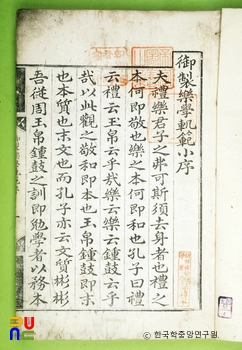 御製樂學軌範小序
夫禮樂君子之弗可斯須去身者也禮之
本何卽敬也樂之本何卽和也孔子曰禮
云禮云玉帛云乎哉樂云樂云鍾鼓云乎
哉以此觀之敬和卽本也玉帛鍾鼓卽末
也本質也末文也而孔子亦云文質彬彬
吾從周玉帛鍾鼓之訓卽勉學者以務本
한국학중앙연구원